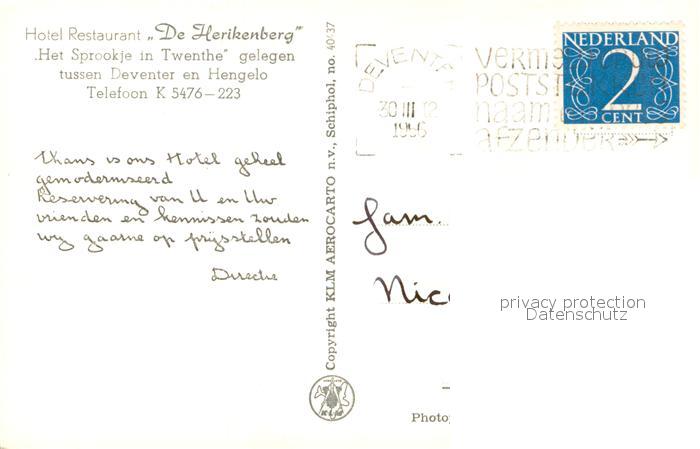 Hotel Restaurant „De Herikenberg”
„Het Sprookje in Twenthe” gelegen
tussen Deventer en Hengelo
Telefoon K 5476—223
Thans is ons Hotel geheel
gemoderniseerd
Reservering van U en Uw
vrienden en kennissen zouden
wij gaarne op prijsstellen
Directie
Copyright KLM AEROCARTO n.v., Schiphol, no. 40437
KLM
DEVENT
30 III 12
1956
verme
POSTST
naam
afzender
NEDERLAND
2
CENT
Fam.
Nic
privacy protection
Datenschutz
Photo